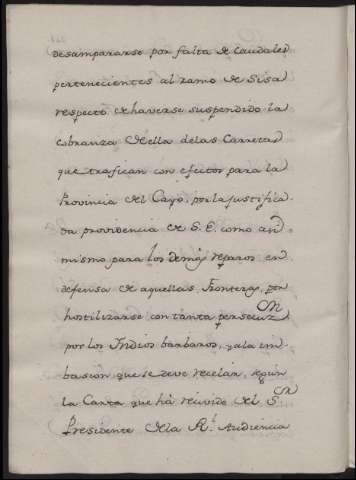 desampararse por falta de Caudales
pertenecientes al ramo de Sisa
respecto de haverse suspendido la
cobranza de ella de las Carretas
que trafican con efectos para la
Provincia del Cuyo, por la justifica-
da providencia de S. E. como asi
mismo para los demas reparos en
defensa de aquellas Fronteras, por
hostilizarse con tanta persecuz.on
por los Indios barbaros, y a la im
basion que se deve recelar, segun
la Carta que há recivido del S.or
Presidente de la R.l Audiencia